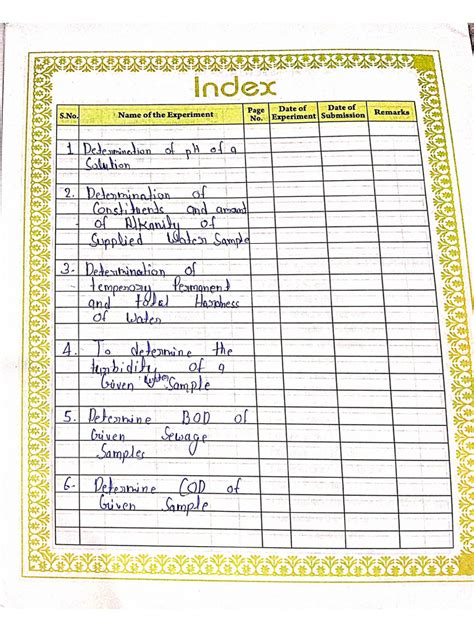 Index
S.No. Name of the Experiment Page No. Date of Experiment Date of Submission Remarks
1 Determination of pH of a
Solution
2. Determination of
Constituents and amount
of Alkanity of
Supplied Water Sample
3- Determination of
temporary Permanent
and total Hardness
of Water
4. To determine the
turbidity of a
Given water Sample
5. Determine BOD of
Given Sewage
Samples
6- Determine COD of
Given Sample